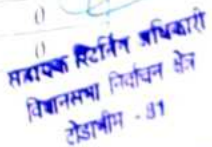 ()
()
सहायक रिटर्निंग अधिकारी
विधानसभा निर्वाचन क्षेत्र
टोडाभीम - 81